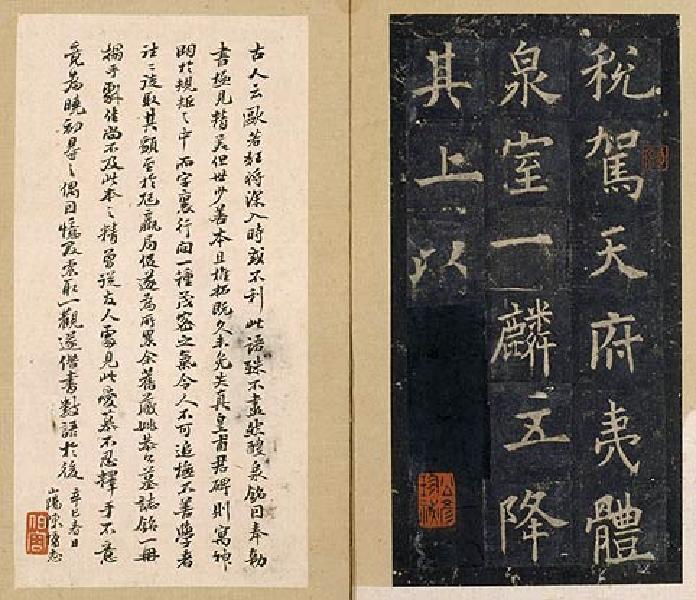 税駕天府夷體
泉室一麟五降
其上以
古人云歐若狂將深入時或不利此語殊不盡然醴泉銘曰奉勅
書極見精美但世少善本且椎拓既久未免失真皇甫君碑則寓神
明於規矩之中而字裏行間一種茂密之氣令人不可追不善學者
往往誤取其類至於尪羸局促遂為所累余舊藏姚恭公墓誌銘一冊
搨手佳尚不及此本之精曾從友人處見此愛慕不忍釋手不意
竟為曉初尋之偶因憶及索取一觀遂借書數語於後
辛巳春日
山陽宗志